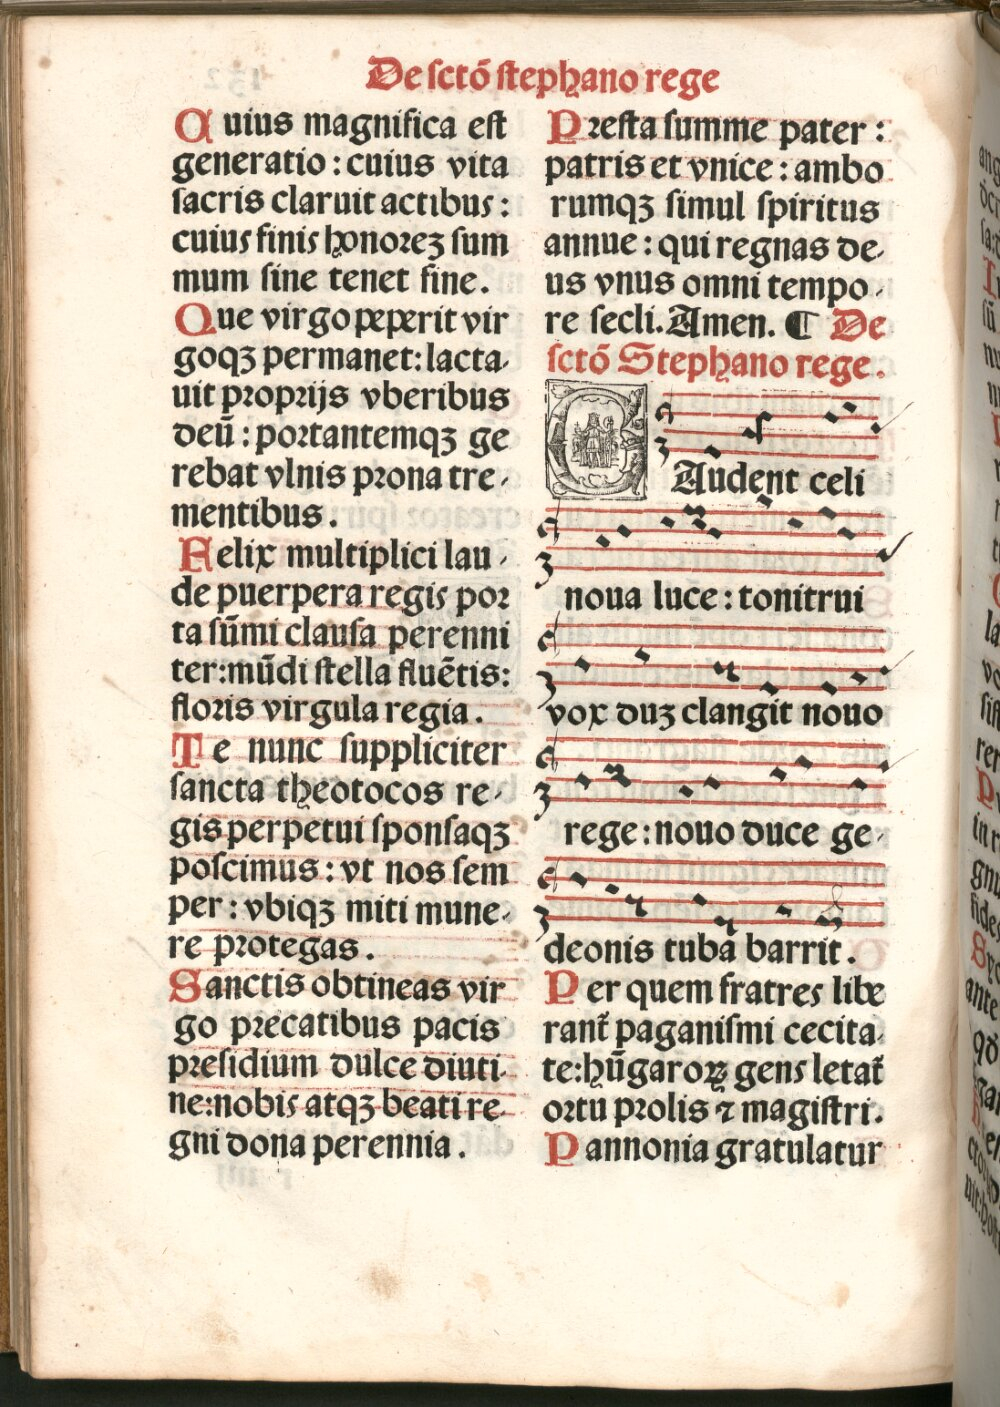 De sctō stephano rege
Cuius magnifica est
generatio : cuius vita
sacris claruit actibus :
cuius finis honoreꝫ sum
mum sine tenet fine.
Que virgo peperit vir
goqꝫ permanet: lacta-
uit proprijs vberibus
deū : portantemqꝫ ge
rebat vlnis prona tre-
mentibus.
Felix multiplici lau-
de puerpera regis por
ta sūmi clausa perenni
ter:mūdi stella fluētis:
floris virgula regia.
Te nunc suppliciter
sancta theotocos re-
gis perpetui sponsaqꝫ
poscimus : vt nos sem
per : vbiqꝫ miti mune-
re protegas.
Sanctis obtineas vir
go precatibus pacis
presidium dulce diuti-
ne:nobis atqꝫ beati re-
gni dona perennia.
Presta summe pater :
patris et vnice : ambo
rumqꝫ simul spiritus
annue : qui regnas de-
us vnus omni tempo-
re secli. Amen. ¶ De
sctō Stephano rege.
GAudent celi
noua luce : tonitrui
vox duꝫ clangit nouo
rege : nouo duce ge-
deonis tuba barrit.
Per quem fratres libe
rant̄ paganismi cecita-
te:hūgaroꝝ gens letat̄
ortu prolis ⁊ magistri.
Pannonia gratulatur